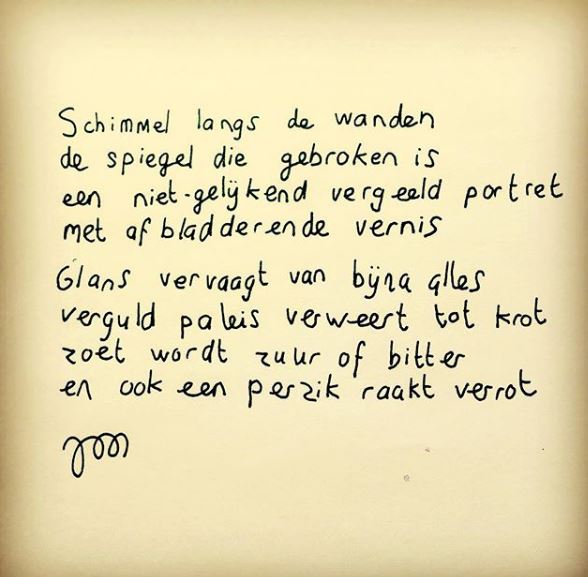 Schimmel langs de wanden
de spiegel die gebroken is
een niet-gelijkend vergeeld portret
met afbladderende vernis
Glans vervaagt van bijna alles
verguld paleis verweert tot krot
zoet wordt zuur of bitter
en ook een perzik raakt verrot